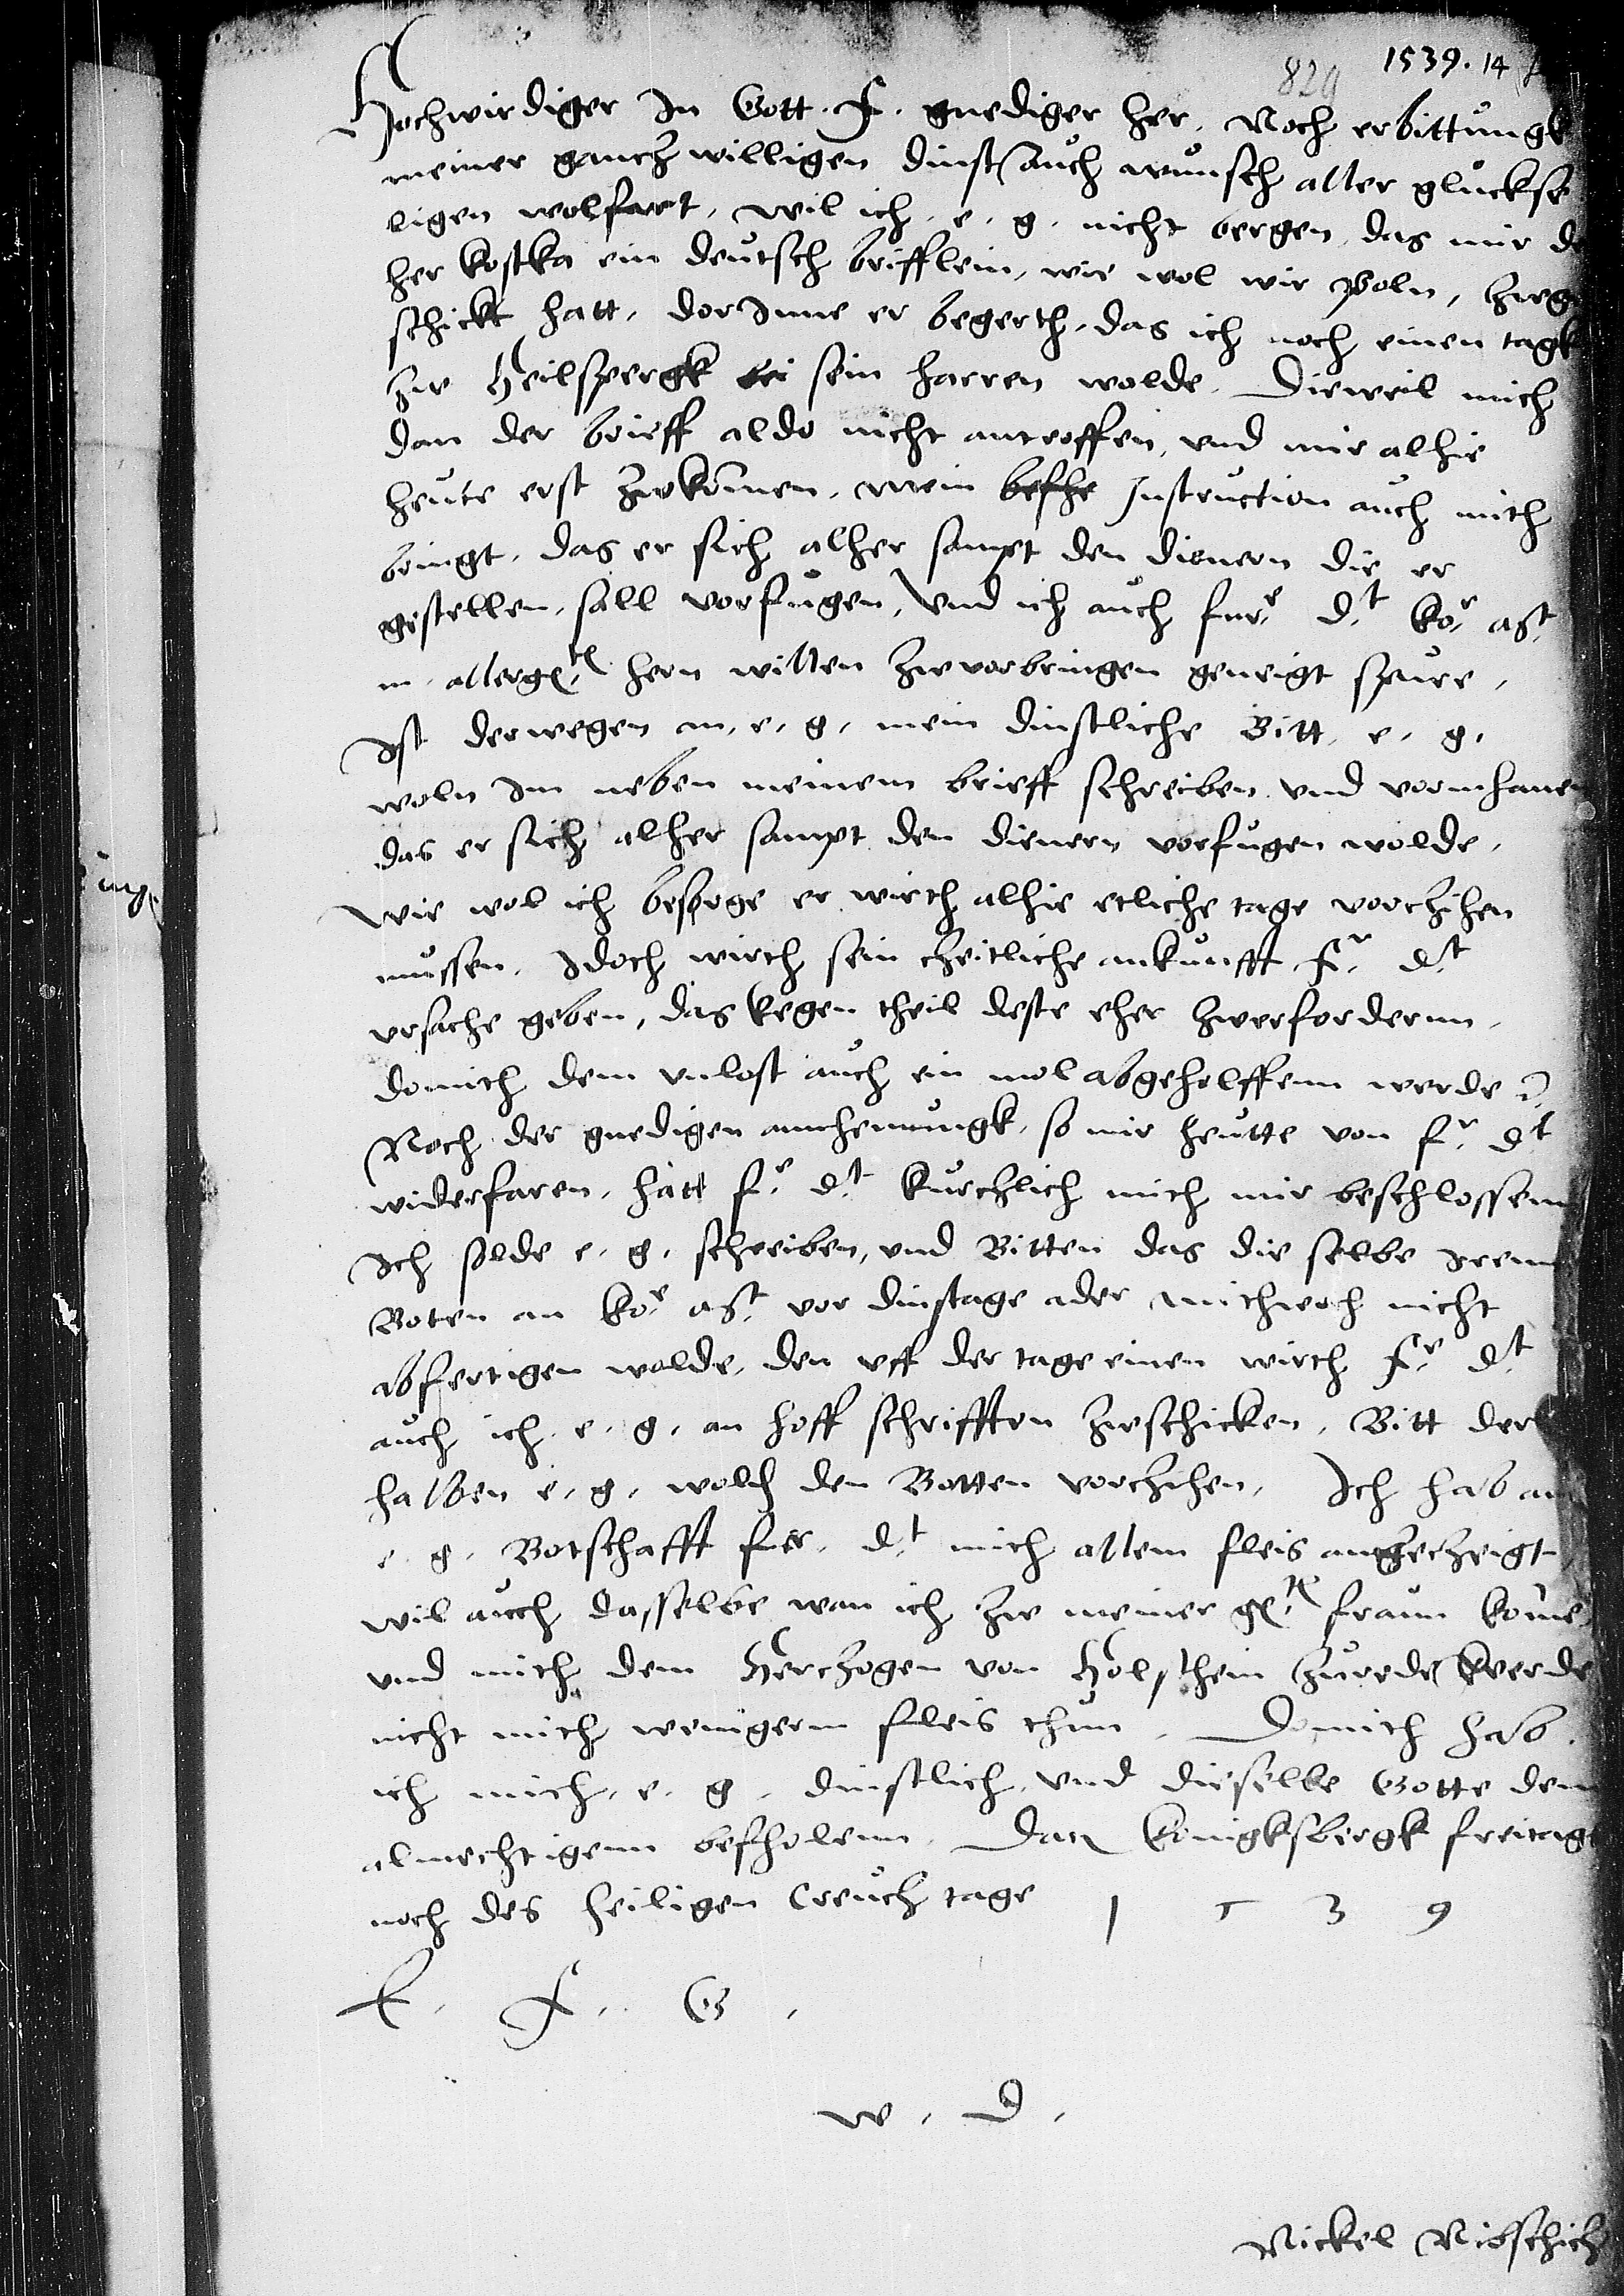 1539. 14
829
Hochwirdiger In Gott. F. gnediger her. Noch erbittungk
meiner gancz willigen dinst auch wunsch aller gluckse
ligen wolfart, wil ich. e. g. nicht bergen, das mir d
her kostka ein deutsch brifflein, wie wol wir poln, zwge
schickt hatt, dorInne er begerth, das ich noch einen tagk
zw Heilspergk sein harren wolde. Dieweil mich
dan der brieff aldo nicht antroffen, vnd mir alhie
heute erst zwkommen, mein befhe Instruction auch mith
bringt, das er sich alher sampt den dienern die er
gestellen, sall vorfugen, Vnd ich auch fur. d.t ko.r mt.
m. allerg.n hern willen zwvorbringen geneigt spure,
Ist derwegen an, e, g, mein dinstliche Bitt, e, g,
woln Im neben meinem brieff schreiben vnd vormhanen
das er sich alher sampt den dienern vorfugen wolde,
wie wol ich besorge er wirth alhie etliche tage vorczihen
mussen, Idoch wirth sein czeitliche ankunfft f.r d.t
vrsache geben, das kegen theil deste eher zwerfordernn,
domith dem vnlost auch ein mol abgeholffenn werde
Noch der gnedigen annhemungk, so mir heutte von f.r d.t
widerfaren, hatt f.r d.t kurczlich mith mir beschlossenn
Ich solde e. g. schreiben, vnd Bitten das die selbe irenn
Boten an ko.r mt. vor dinstage ader mithwoch nicht
abfertigen wolde, den vff der tage einen wirth f.r d.t
auch ich e. g. an hoff schrifften zwschicken, Bitt der
halben e. g. wold den Botten vorczihen, Ich hab au
e. g. Botschafft fur. d.t mith allem fleis angeczeigt
wil auch dasselbe wan ich zw meiner g.n fraun kome
vnd mith dem Herczogen von Holsthein zurede werde
nicht mith wenigerm fleis thun. Domith hab
ich mich, e. g. dinstlich, vnd dieselbe Gotte dem
almechtigenn befholenn. Dat Konigksbergk freitagk
noch des heiligen Creucz tage 1 5 3 9
E. F. G.
w. D.
Nickel Nibschicz